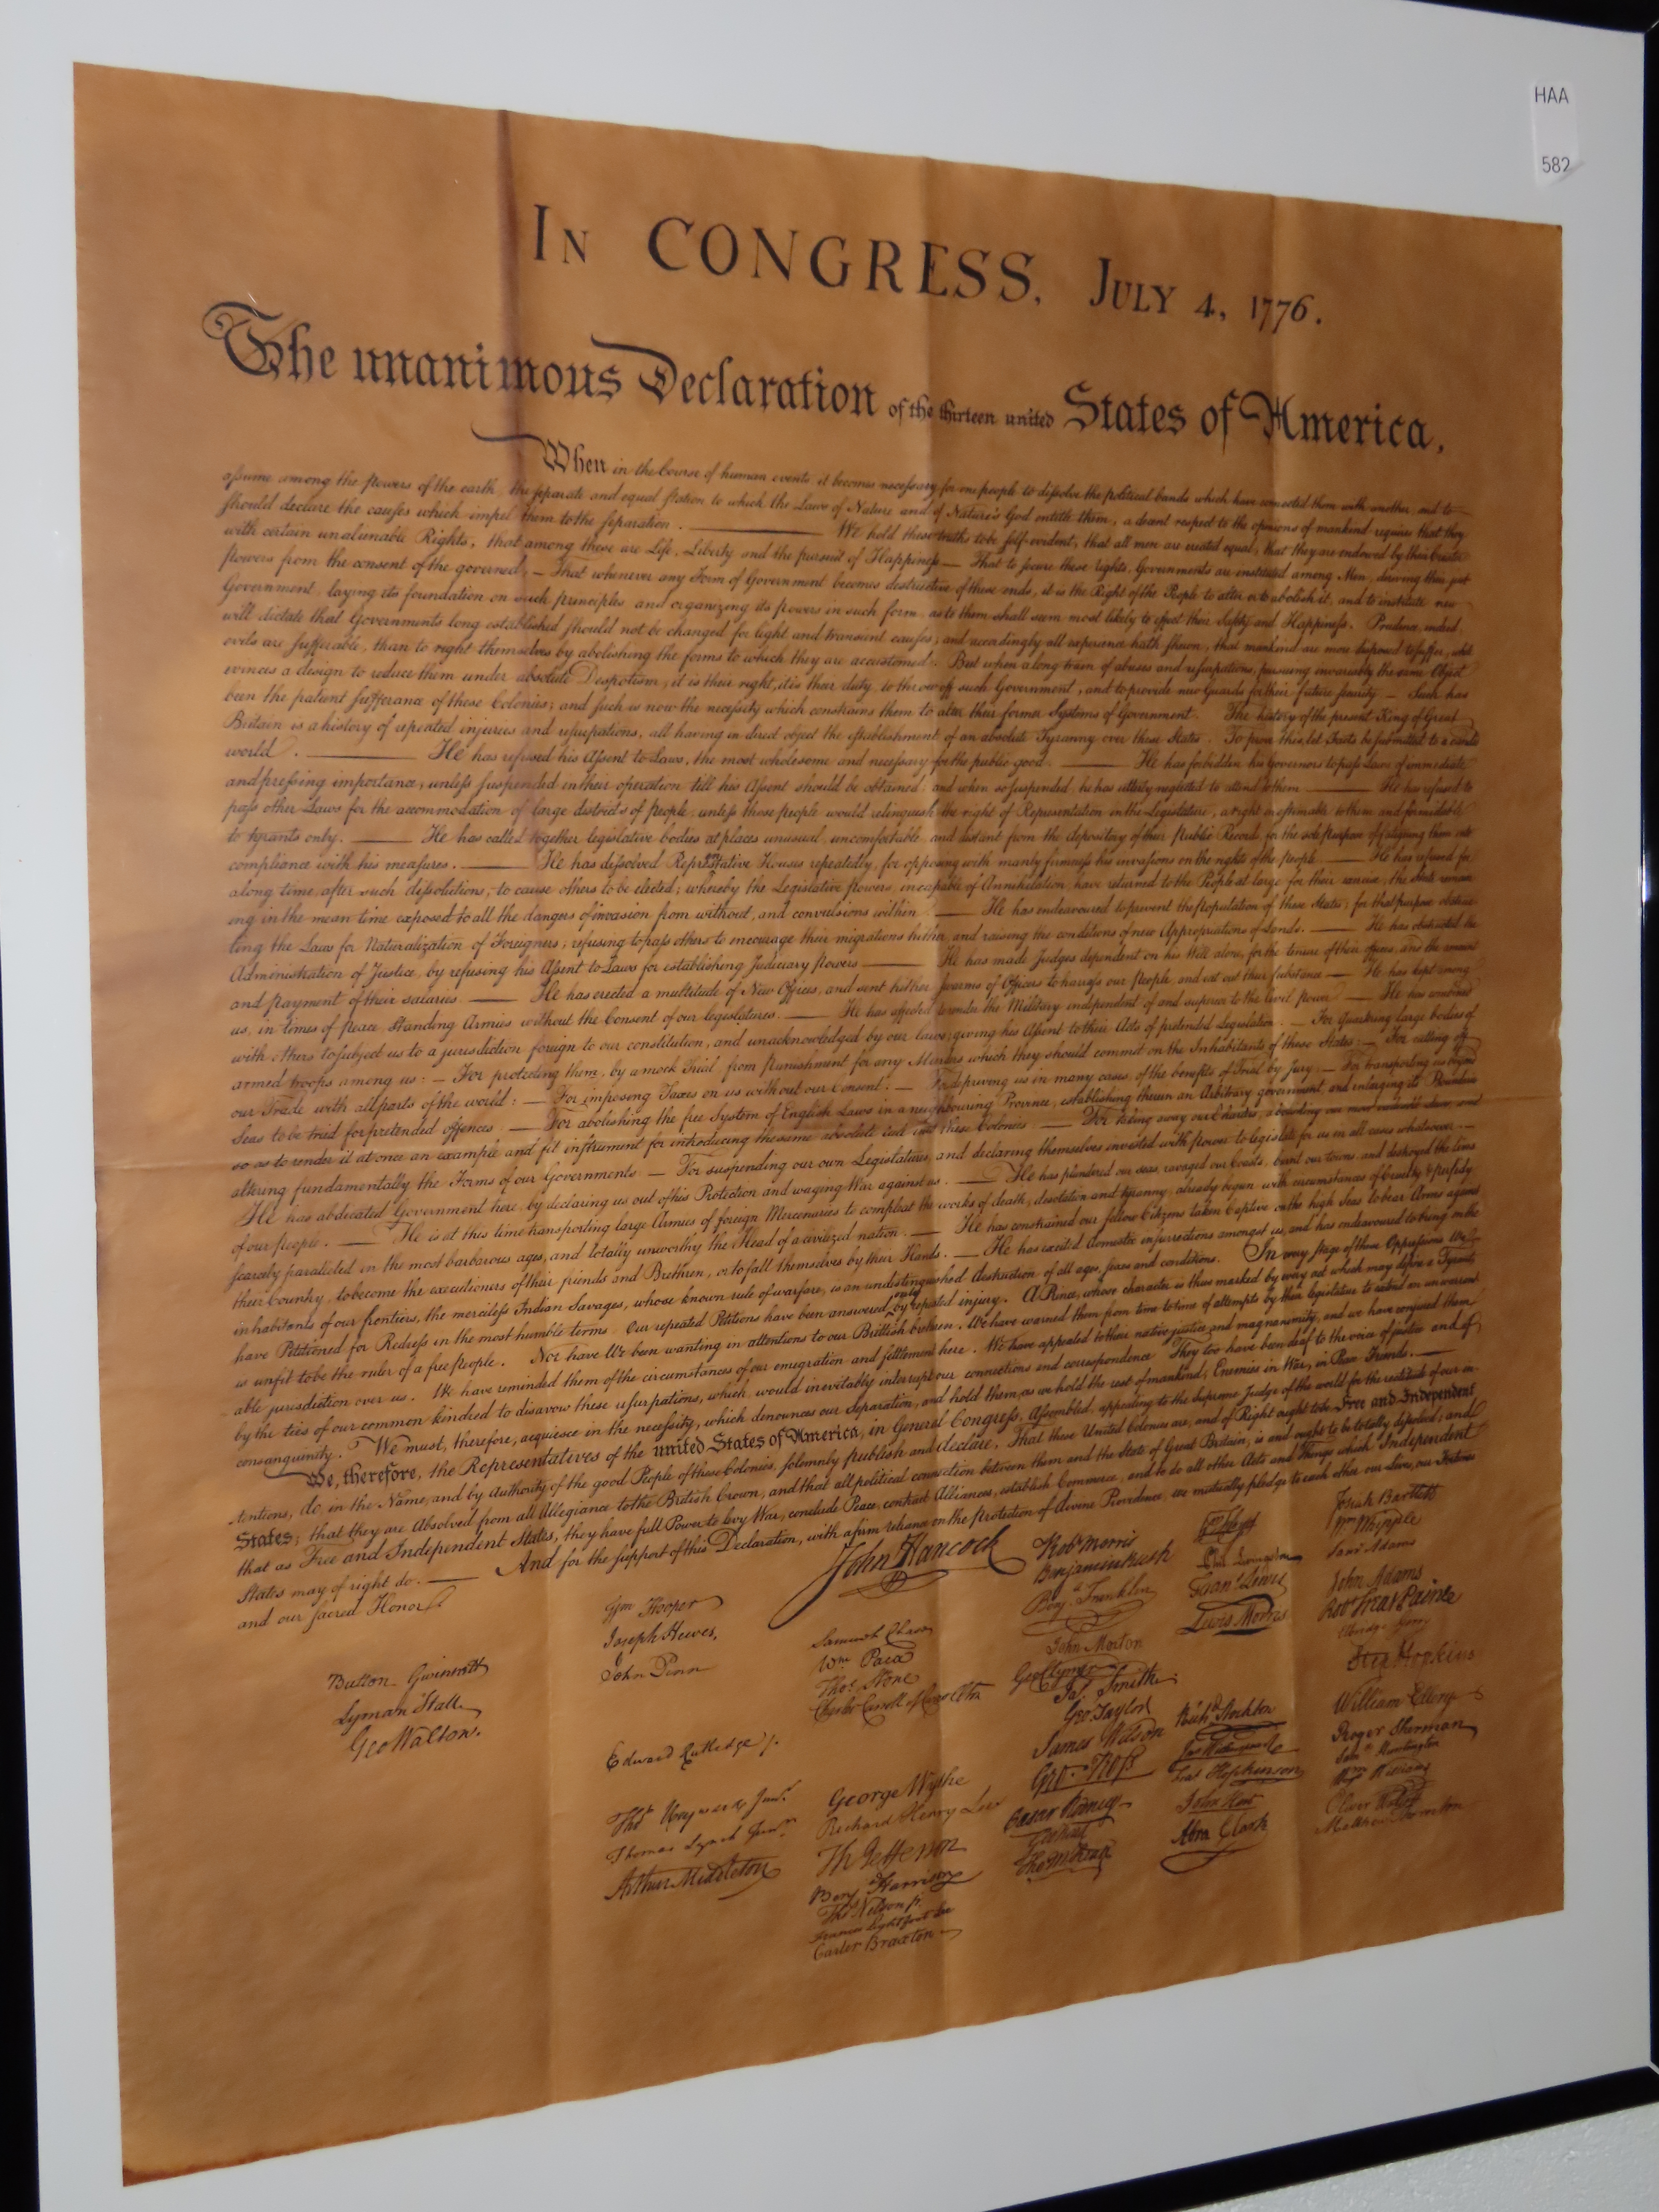 HAA
582
IN CONGRESS, JULY 4, 1776.
The unanimous Declaration of the thirteen united States of America,
When in the Course of human events it becomes necessary for one people to dissolve the political bands which have connected them with another, and to
assume among the powers of the earth, the separate and equal station to which the Laws of Nature and of Nature's God entitle them, a decent respect to the opinions of mankind requires that they
should declare the causes which impel them to the separation. — We hold these truths to be self-evident, that all men are created equal, that they are endowed by their Creator
with certain unalienable Rights, that among these are Life, Liberty and the pursuit of Happiness — That to secure these rights, Governments are instituted among Men, deriving their just
powers from the consent of the governed, — That whenever any Form of Government becomes destructive of these ends, it is the Right of the People to alter or to abolish it, and to institute new
Government, laying its foundation on such principles and organizing its powers in such form, as to them shall seem most likely to effect their Safety and Happiness. Prudence, indeed,
will dictate that Governments long established should not be changed for light and transient causes; and accordingly all experience hath shewn, that mankind are more disposed to suffer, while
evils are sufferable, than to right themselves by abolishing the forms to which they are accustomed. But when a long train of abuses and usurpations, pursuing invariably the same Object
evinces a design to reduce them under absolute Despotism, it is their right, it is their duty, to throw off such Government, and to provide new Guards for their future security. — Such has
been the patient sufferance of these Colonies; and such is now the necessity which constrains them to alter their former Systems of Government. The history of the present King of Great
Britain is a history of repeated injuries and usurpations, all having in direct object the establishment of an absolute Tyranny over these States. To prove this, let Facts be submitted to a candid
world. — He has refused his Assent to Laws, the most wholesome and necessary for the public good. — He has forbidden his Governors to pass Laws of immediate
and pressing importance, unless suspended in their operation till his Assent should be obtained; and when so suspended, he has utterly neglected to attend to them. — He has refused to
pass other Laws for the accommodation of large districts of people, unless those people would relinquish the right of Representation in the Legislature, a right inestimable to them and formidable
to tyrants only. — He has called together legislative bodies at places unusual, uncomfortable, and distant from the depository of their Public Records, for the sole purpose of fatiguing them into
compliance with his measures. — He has dissolved Representative Houses repeatedly, for opposing with manly firmness his invasions on the rights of the people. — He has refused for
a long time, after such dissolutions, to cause others to be elected; whereby the Legislative powers, incapable of Annihilation, have returned to the People at large for their exercise; the State remain
ing in the mean time exposed to all the dangers of invasion from without, and convulsions within. — He has endeavoured to prevent the population of these States; for that purpose obstruc
ting the Laws for Naturalization of Foreigners; refusing to pass others to encourage their migrations hither, and raising the conditions of new Appropriations of Lands. — He has obstructed the
Administration of Justice, by refusing his Assent to Laws for establishing Judiciary powers. — He has made Judges dependent on his Will alone, for the tenure of their offices, and the amount
and payment of their salaries. — He has erected a multitude of New Offices, and sent hither swarms of Officers to harrass our People, and eat out their substance. — He has kept among
us, in times of peace, Standing Armies without the Consent of our legislatures. — He has affected to render the Military independent of and superior to the Civil power. — He has combined
with others to subject us to a jurisdiction foreign to our constitution, and unacknowledged by our laws; giving his Assent to their Acts of pretended Legislation: — For quartering large bodies of
armed troops among us: — For protecting them, by a mock Trial, from punishment for any Murders which they should commit on the Inhabitants of these States: — For cutting off
our Trade with all parts of the world: — For imposing Taxes on us without our Consent: — For depriving us in many cases, of the benefits of Trial by Jury: — For transporting us beyond
Seas to be tried for pretended offences — For abolishing the free System of English Laws in a neighbouring Province, establishing therein an Arbitrary government, and enlarging its Boundaries
so as to render it at once an example and fit instrument for introducing the same absolute rule into these Colonies: — For taking away our Charters, abolishing our most valuable Laws, and
altering fundamentally the Forms of our Governments: — For suspending our own Legislatures, and declaring themselves invested with power to legislate for us in all cases whatsoever. —
He has abdicated Government here, by declaring us out of his Protection and waging War against us. — He has plundered our seas, ravaged our Coasts, burnt our towns, and destroyed the lives
of our people. — He is at this time transporting large Armies of foreign Mercenaries to compleat the works of death, desolation and tyranny, already begun with circumstances of Cruelty & perfidy
scarcely paralleled in the most barbarous ages, and totally unworthy the Head of a civilized nation. — He has constrained our fellow Citizens taken Captive on the high Seas to bear Arms against
their Country, to become the executioners of their friends and Brethren, or to fall themselves by their Hands. — He has excited domestic insurrections amongst us, and has endeavoured to bring on the
inhabitants of our frontiers, the merciless Indian Savages, whose known rule of warfare, is an undistinguished destruction of all ages, sexes and conditions. In every stage of these Oppressions We
have Petitioned for Redress in the most humble terms: Our repeated Petitions have been answered only by repeated injury. A Prince, whose character is thus marked by every act which may define a Tyrant,
is unfit to be the ruler of a free people. Nor have We been wanting in attentions to our Brittish brethren. We have warned them from time to time of attempts by their legislature to extend an unwarrant
able jurisdiction over us. We have reminded them of the circumstances of our emigration and settlement here. We have appealed to their native justice and magnanimity, and we have conjured them
by the ties of our common kindred to disavow these usurpations, which, would inevitably interrupt our connections and correspondence. They too have been deaf to the voice of justice and of
consanguinity. We must, therefore, acquiesce in the necessity, which denounces our Separation, and hold them, as we hold the rest of mankind, Enemies in War, in Peace Friends. —
We, therefore, the Representatives of the united States of America, in General Congress, Assembled, appealing to the Supreme Judge of the world for the rectitude of our in-
tentions, do, in the Name, and by Authority of the good People of these Colonies, solemnly publish and declare, That these United Colonies are, and of Right ought to be Free and Independent
States; that they are Absolved from all Allegiance to the British Crown, and that all political connection between them and the State of Great Britain, is and ought to be totally dissolved; and
that as Free and Independent States, they have full Power to levy War, conclude Peace, contract Alliances, establish Commerce, and to do all other Acts and Things which Independent
States may of right do. — And for the support of this Declaration, with a firm reliance on the protection of divine Providence, we mutually pledge to each other our Lives, our Fortunes
and our sacred Honor.
John Hancock
Button Gwinnett
Lyman Hall
Geo Walton.
Wm Hooper
Joseph Hewes,
John Penn
Edward Rutledge /.
Thos Heyward Junr.
Thomas Lynch Junr.
Arthur Middleton
Samuel Chase
Wm Paca
Thos Stone
Charles Carroll of Carrollton
George Wythe
Richard Henry Lee
Th Jefferson
Benj Harrison
Thos Nelson jr.
Francis Lightfoot Lee
Carter Braxton
Robt Morris
Benjamin Rush
Benj. Franklin
John Morton
Geo Clymer
Jas. Smith
Geo. Taylor
James Wilson
Geo. Ross
Caesar Rodney
Geo Read
Tho M:Kean
Wm Floyd
Phil. Livingston
Frans. Lewis
Lewis Morris
Richd. Stockton
Jno Witherspoon
Fras. Hopkinson
John Hart
Abra Clark
Josiah Bartlett
Wm Whipple
Saml Adams
John Adams
Robt Treat Paine
Elbridge Gerry
Step. Hopkins
William Ellery
Roger Sherman
Saml Huntington
Wm Williams
Oliver Wolcott
Matthew Thornton